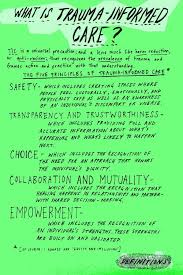 WHAT IS TRAUMA-INFORMED
CARE?
TIC is a universal precaution, and a lens much like harm reduction,
or anti-racism, that recognizes the prevalence of trauma and
THE FIVE PRINCIPLES OF TRAUMA-INFORMED CARE
SAFETY- WHICH INCLUDES CREATING SPACES WHERE
PEOPLE FEEL CULTURALLY, EMOTIONALLY, AND
PHYSICALLY SAFE AS WELL AS AN AWARENESS
OF AN INDIVIDUAL'S DISCOMFORT OR UNEASE.
TRANSPARENCY AND TRUSTWORTHINESS-
WHICH INCLUDES PROVIDING FULL AND
ACCURATE INFORMATION ABOUT WHAT'S
HAPPENING AND WHAT'S LIKELY TO HAPPEN
NEXT.
CHOICE - WHICH INCLUDES THE RECOGNITION OF
THE NEED FOR AN APPROACH THAT HONORS
THE INDIVIDUAL'S DIGNITY.
COLLABORATION AND MUTUALITY-
WHICH INCLUDES THE RECOGNITION THAT
HEALING HAPPENS IN RELATIONSHIPS AND
WITH SHARED DECISION-MAKING.
EMPOWERMENT-
WHICH INCLUDES THE RECOGNITION OF
AN INDIVIDUAL'S STRENGTHS. THESE STRENGTHS
ARE BUILT ON AND VALIDATED
DEFINITIONS